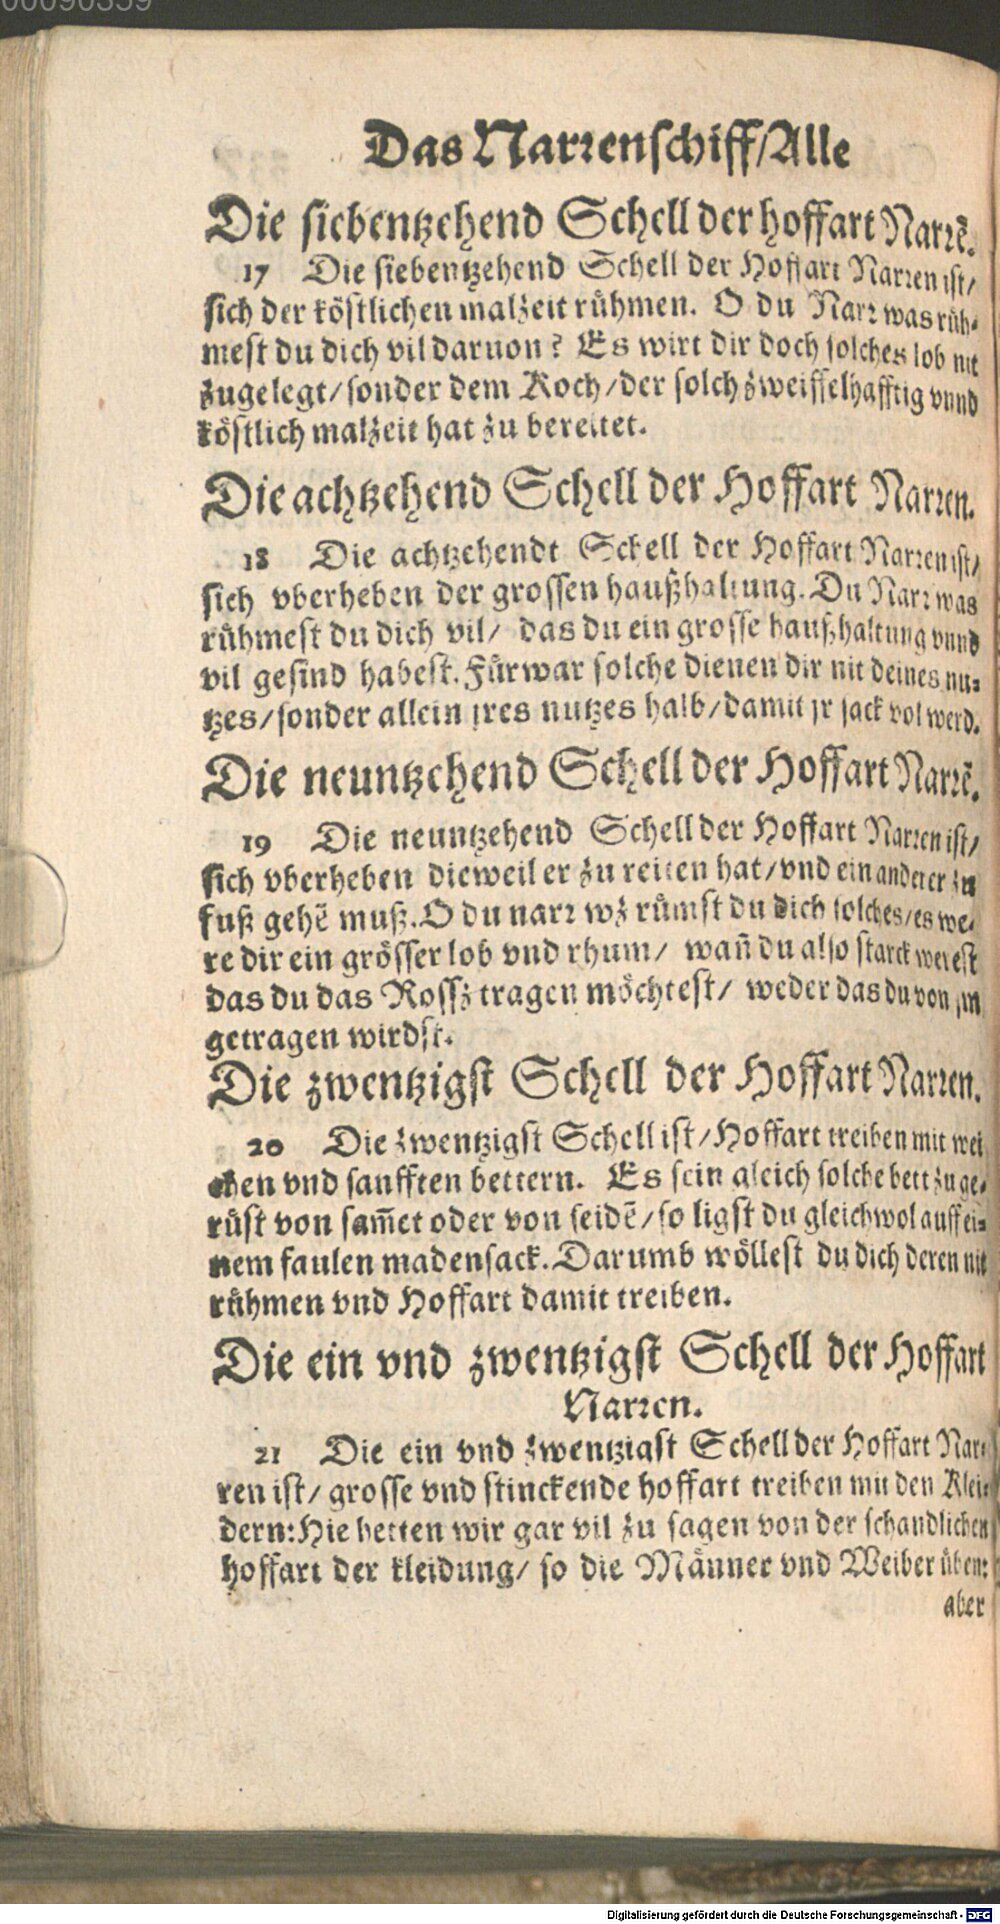 00090359
Das Narrenschiff/Alle
Die siebentzehend Schell der hoffart Narrẽ.
17 Die siebentzehend Schell der Hoffart Narren ist/
sich der köstlichen malzeit rühmen. O du Narr was rüh-
mest du dich vil daruon? Es wirt dir doch solches lob nit
zugelegt/sonder dem Koch/der solch zweiffelhafftig vnnd
köstlich malzeit hat zu bereitet.
Die achtzehend Schell der Hoffart Narren.
18 Die achtzehendt Schell der Hoffart Narren ist/
sich vberheben der grossen haußhaltung. Du Narr was
rühmest du dich vil/ das du ein grosse haußhaltung vnnd
vil gesind habest. Fürwar solche dienen dir nit deines nu-
tzes/sonder allein jres nutzes halb/damit jr sack vol werd.
Die neuntzehend Schell der Hoffart Narrẽ.
19 Die neuntzehend Schell der Hoffart Narren ist/
sich vberheben dieweil er zu reiten hat/vnd ein anderer zu
fuß gehẽ muß. O du narr wz rümst du dich solches/es we-
re dir ein grösser lob vnd rhum/ wañ du also starck werest
das du das Rossz tragen möchtest/ weder das du von jm
getragen wirdst.
Die zwentzigst Schell der Hoffart Narren.
20 Die zwentzigst Schell ist/Hoffart treiben mit wei
chen vnd sanfften bettern. Es sein gleich solche bett zu ge-
rüst von sam̃et oder von seidẽ/so ligst du gleichwol auff ei-
nem faulen madensack. Darumb wöllest du dich deren nit
rühmen vnd Hoffart damit treiben.
Die ein vnd zwentzigst Schell der Hoffart
Narren.
21 Die ein vnd zwentzigst Schell der Hoffart Nar-
ren ist/ grosse vnd stinckende hoffart treiben mit den Klei-
dern: Hie hetten wir gar vil zu sagen von der schandlichen
hoffart der kleidung/ so die Männer vnd Weiber üben:
aber
Digitalisierung gefördert durch die Deutsche Forschungsgemeinschaft - DFG